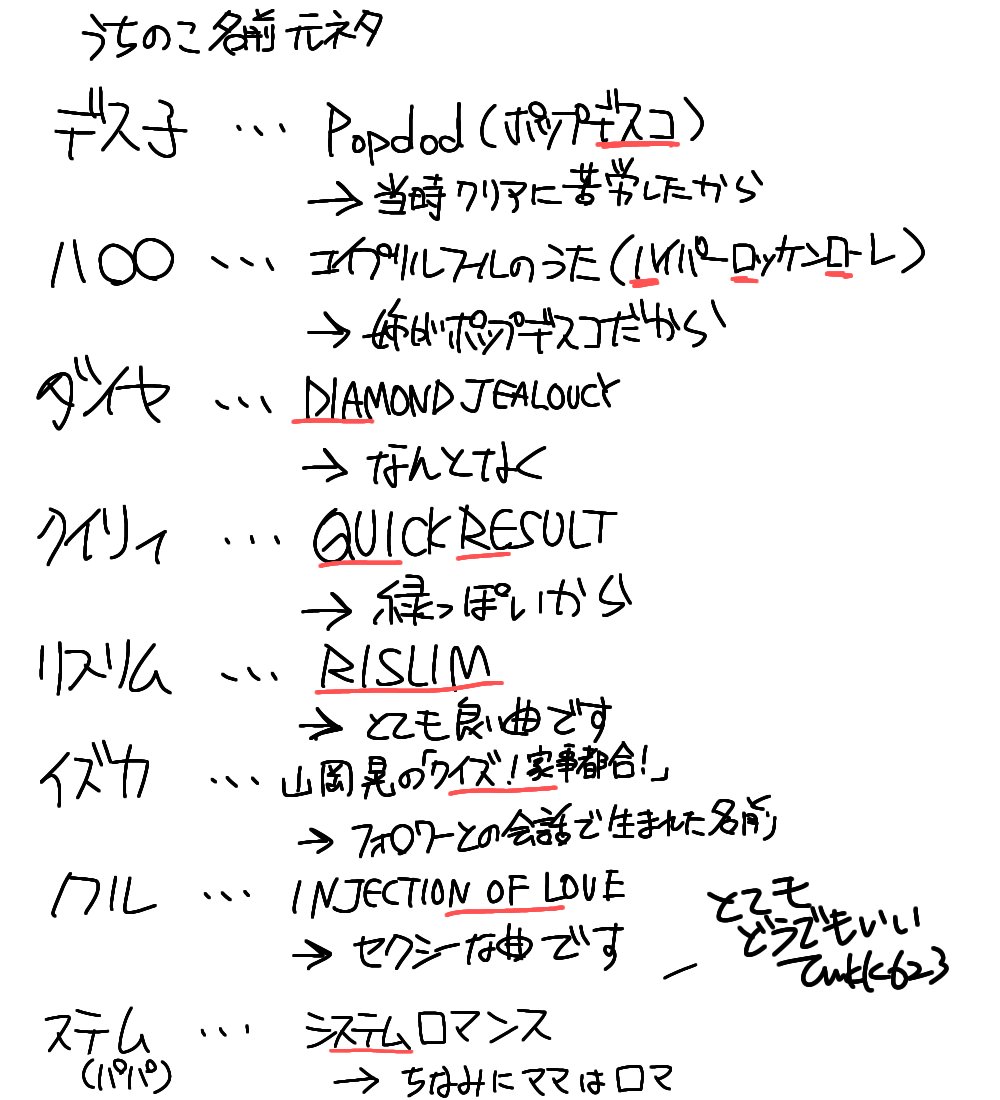 うちのこ名前元ネタ
デス子 … Popdod(ポップデスコ)
→ 当時クリアに苦労したから
ハロロ … エイプリルフールのうた(ハイパーロッケンローレ)
→ 姉がポップデスコだから
ダイヤ … DIAMOND JEALOUCY
→ なんとなく
クイリィ … QUICK RESULT
→ 緑っぽいから
リスリム … RISLIM
→ とても良い曲です
イズカ … 山岡晃の「クイズ!家事都合!」
→ フォロワーとの会話で生まれた名前
ノワル … INJECTION OF LOVE
→ セクシーな曲です
とても
どうでもいい
ステム … システムロマンス
(パパ) → ちなみにママはロマ